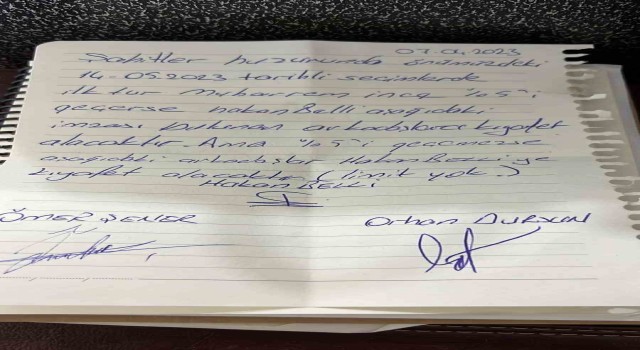 07.04.2023
Şahitler huzurunda önümüzdeki
14-05.2023 tarihli seçimlerde
ilktur Muharrem ince %5'i
geçerse hakan Belli aşağıdaki
imzası bulunan arkadaşlara kıyafet
alacaktır. Ama %5'i geçemezse
aşağıdaki arkadaşlar Hakan BELLİ'ye
kıyafet alacaktır (limit yok.)
Hakan BELLİ
ÖMER ŞENER
Orhan DURSUN